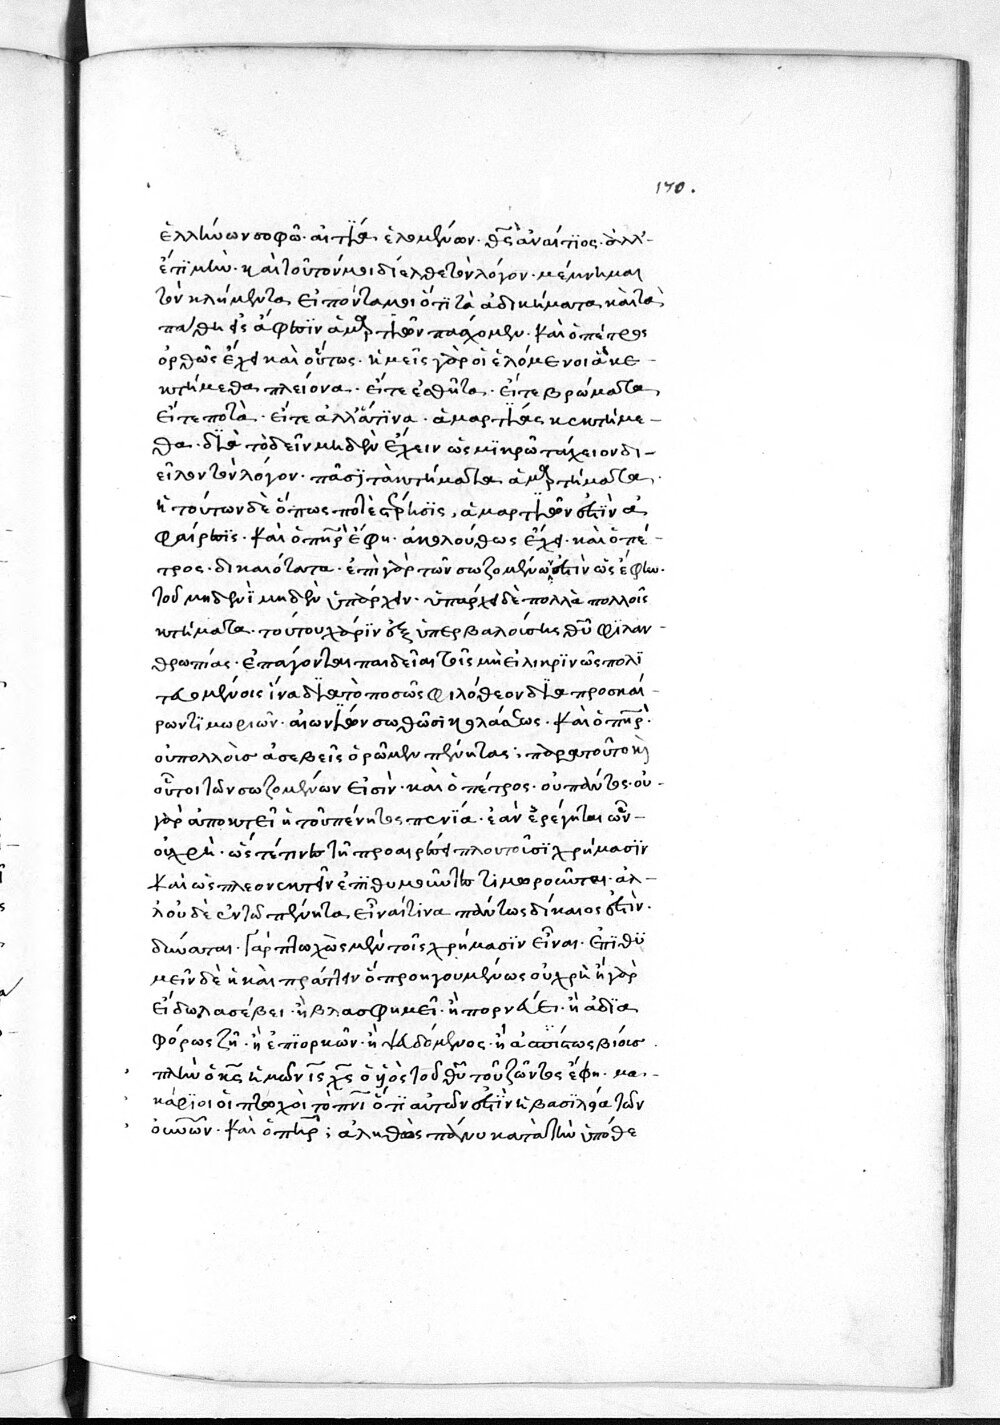 170.
ἑλλήνων σοφῶ· αἰτία ἑλομένων· θς ἀναίτιος· ἀλλ'
ἔτι μὴν· καὶ τοῦτόν μοι δίελθε τὸν λόγον· μέμνημαι
τὸν κλήμεντα εἰπόντα μοι ὅτι τὰ ἀδικήματα καὶ τὰ
πάθη εἰς ἄφεσιν ἁμρτιῶν πάσχομεν· καὶ ὁ πέτρος
ὀρθῶς ἔχει καὶ οὕτως· ἡμεῖς γὰρ οἱ ἑλόμενοι
κτήμεθα πλείονα· εἴτε ἐσθῆτα· εἴτε βρώματα
εἴτε ποτὰ· εἴτε ἀλλάτινα· ἁμαρτίας κεκτήμε-
θα· διὰ τὸ δεῖν μηδὲν ἔχειν ὡς μικρῶ τάχειον δι-
εῖλον τὸν λόγον· πᾶσι τὰ κτήματα ἁμρτήματα·
ἡ τούτων δὲ ὅπως ποτὲ στέρησις, ἁμαρτιῶν ἐστιν ἀ
φαίρεσις· καὶ ὁ πηρ ἔφη· ἀκολούθως ἔχει· καὶ ὁ πέ-
τρος· δικαιότατα· ἐπὶ γὰρ τῶν σωζομένων ἐστὶν ὡς ἔφην·
τοῦ μηδενὶ μηδὲν ὑπάρχειν· ὑπάρχει δὲ πολλὰ πολλοῖς
κτήματα· τούτου χάριν ἐξ ὑπερβαλούσης θυ φιλαν-
θρωπίας· ἐπάγονται παιδεῖαι τοῖς μὴ εἰλικρινῶς πολι
τευομένοις ἵνα διὰ τὸ ποσῶς φιλόθεον διὰ προσκαί-
ρων τιμωριῶν· αἰωνίων σωθῶσι κολάσεως· καὶ ὁ πηρ·
οὐ πολλοὺς ἀσεβεῖς ὁρῶμεν πένητας; παρὰ τοῦτο κὶ
οὗτοι τῶν σωζομένων εἰσὶν· καὶ ὁ πέτρος· οὐ πάντες· οὐ-
γὰρ ἀποκτεῖ ἡ τοῦ πένητος πενία· ἐὰν ὀρέγηται ὧν-
οὐ χρὴ· ὥς τέ τινες τῆ προαιρέσει πλουτοῦσι χρήμασιν
καὶ ὡς πλεονεκτεῖν ἐπιθυμοῦντες τιμωροῦνται· ἀλ-
λ οὐδὲ ἐν τῶ πένητα εἶναί τινα πάντως δίκαιος ἐστὶν·
δύναται γὰρ πτωχὸς μὲν τοῖς χρήμασιν εἶναι· ἐπιθυ
μεῖν δὲ ἢ καὶ πράττειν ὃ προηγουμένως οὐ χρὴ ἢ γὰρ
εἴδωλα σέβει· ἢ βλασφημεῖ· ἢ πορνεύει· ἢ ἀδια
φόρως ζῆ· ἢ ἐπιορκῶν· ἢ ψευδόμενος· ἢ ἀπίστως βιοὺσ·
πλὴν ὁ κς ἡμῶν ις χς ὁ υἱὸς τοῦ θυ τοῦ ζῶντος ἔφη· μα-
κάριοι οἱ πτωχοὶ τὸ πνι ὅτι αὐτῶν ἐστιν ἡ βασιλεία τῶν
οὐνῶν· καὶ ὁ πηρ; ἀληθῶς πάνυ κατὰ τὴν ὑπόθε